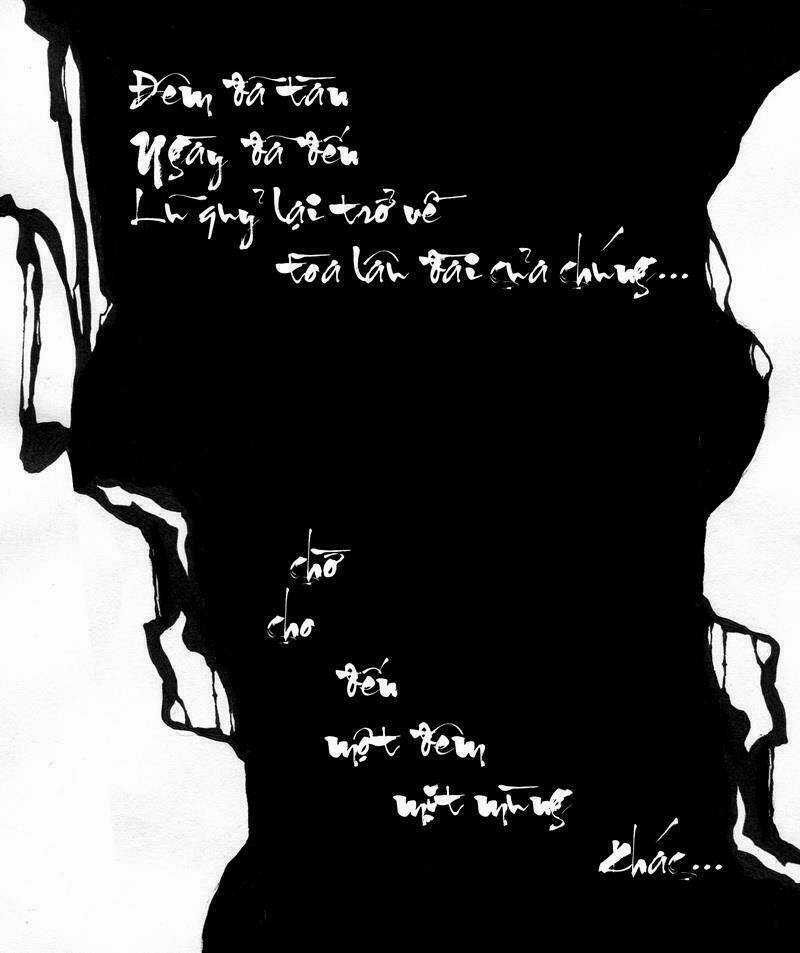 Đêm đã tàn
Ngày đã đến
Lũ quỷ lại trở về
tòa lâu đài của chúng...
chờ
cho
đến
một đêm
mịt mùng
khác...